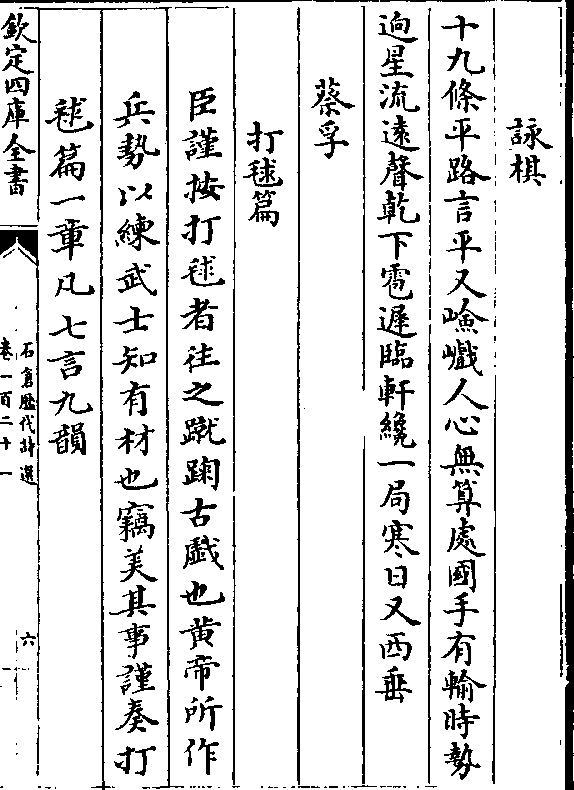 詠棋
十九條平路言平又嶮巇人心無算處國手有輸時勢
逈星流遠聲乾下雹遲臨軒纔一局寒日又西垂
蔡孚
打毬篇
臣謹按打毬者徃之蹴踘古戲也黄帝所作
兵勢以練武士知有材也竊美其事謹奏打
毬篇一章凡七言九韻
欽定四庫全書
石倉歴代詩選
卷一百二十一
六